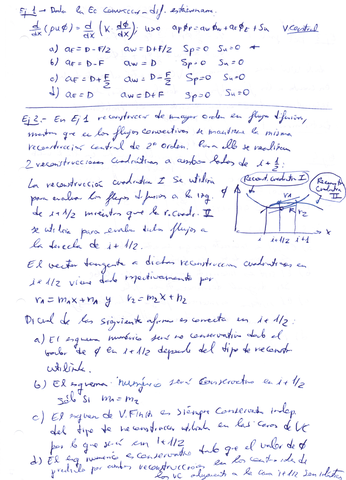 Ej 1 → Dada la Ec conveccion-dif. estacionaria.
d/dx (ρuφ) = d/dx (K dφ/dx), use aPφP = aWφW + aEφE + Su Vcentral
a) aE = D-F/2 aW = D+F/2 Sp=0 Su=0
b) aE = D-F aW = D Sp=0 Su=0
c) aE = D+F/2 aW = D-F/2 Sp=0 Su=0
d) aE = D aW = D+F Sp=0 Su=0
Ej 2.- En Ej 1 reconstruccion de mayor orden en flujo difusivo,
mientras que en los flujos convectivos se mantiene la misma
reconstruccion central de 2º orden. Para ello se realizan
2 reconstrucciones cuadráticas a ambos lados de i+1/2:
La reconstrucción cuadratica I se utiliza
para evaluar los flujos difusivos a la izq.
de i+1/2 mientras que la r. cuadr. II
se utiliza para evaluar flujos a
la derecha de i+1/2.
Reconst cuadratica I
Reconstr cuadrática II
φ
r1
r2
i i+1/2 i+1
x
El vector tangente a dichas reconstrucciones cuadráticas en
i+1/2 viene dado respectivamente por
r1 = m1x + n1 y r2 = m2x + n2
Dicul de las siguiente afirma es correcta en i+1/2:
a) El esquema numérico será no conservativo dado el
valor de φ en i+1/2 depende del tipo de reconst
utilizada.
b) El esquema numérico será conservativo en i+1/2
sólo si m1 = m2
c) El esquema de V. Finitos es siempre conservador indep.
del tipo de reconstruccion utilizada en las caras de VC
por lo que será en i+1/2
d) El esq numérico es conservativo dado que el valor de φ
por ambas reconstrucciones en los
VC adyacente a la cara i+1/2 son